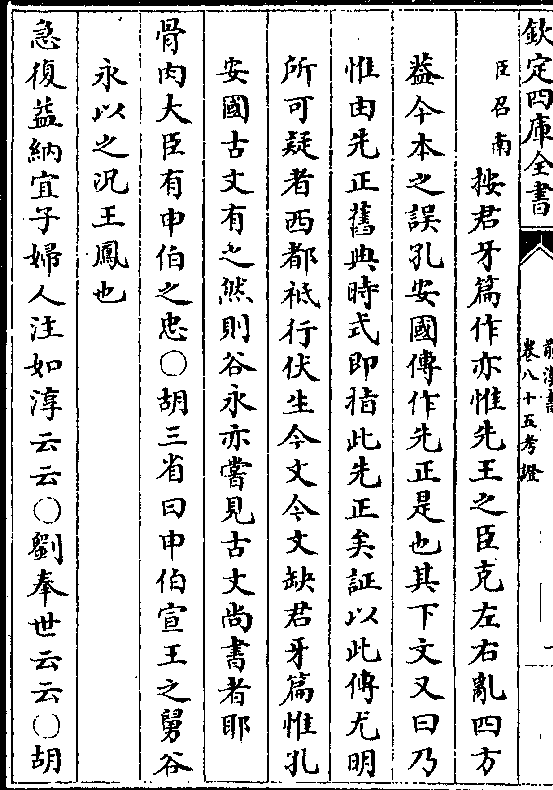 欽定四庫全書
前漢書
卷八十五考證
臣召南按君牙篇作亦惟先王之臣克左右亂四方
葢今本之誤孔安國傳作先正是也其下文又曰乃
惟由先正舊典時式即指此先正矣証以此傳尤明
所可疑者西都祗行伏生今文今文缺君牙篇惟孔
安國古文有之然則谷永亦嘗見古文尚書者耶
骨肉大臣有申伯之忠○胡三省曰申伯宣王之舅谷
永以之况王鳳也
急復益納宜子婦人注如淳云云○劉奉世云云○胡